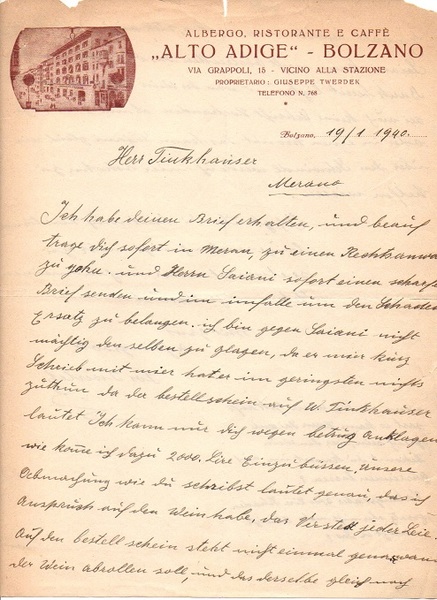 ALBERGO, RISTORANTE E CAFFÈ
„ALTO ADIGE“ - BOLZANO
VIA GRAPPOLI, 15 - VICINO ALLA STAZIONE
PROPRIETARIO: GIUSEPPE TWERDEK
TELEFONO N. 768
Bolzano, 19/1 1940.
Herr Tinkhauser
Merano
Ich habe deinen Brief erhalten, und beauf
trage dich sofort in Meran, zu einen Rechtsanwa
zu gehn. und Herrn Saiani sofort einen scharfe
Brief senden und im falle um den Schaden
Ersatz zu belangen. ich bin gegen Saiani nicht
mächtig den selben zu glagen, da er mir kurz
Schrieb mit mir hat er im geringsten nichts
zuthun da der bestellschein auf W. Tinkhauser
lautet Ich kann nur dich wegen betrug anklagen
wie komme ich dazu 2000. Lire Einzubüssen, unsere
Abmachung wie du schreibst lautet genau, das ich
Anspruch auf den Wein habe, das Versteht jeder Leie.
Auf den bestell schein steht nicht einmal genau wan
der Wein abrollen soll, und das derselbe gleich nach